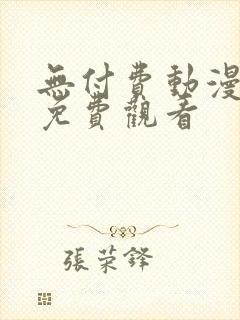 無付費動漫
免費觀看
張荣鋒